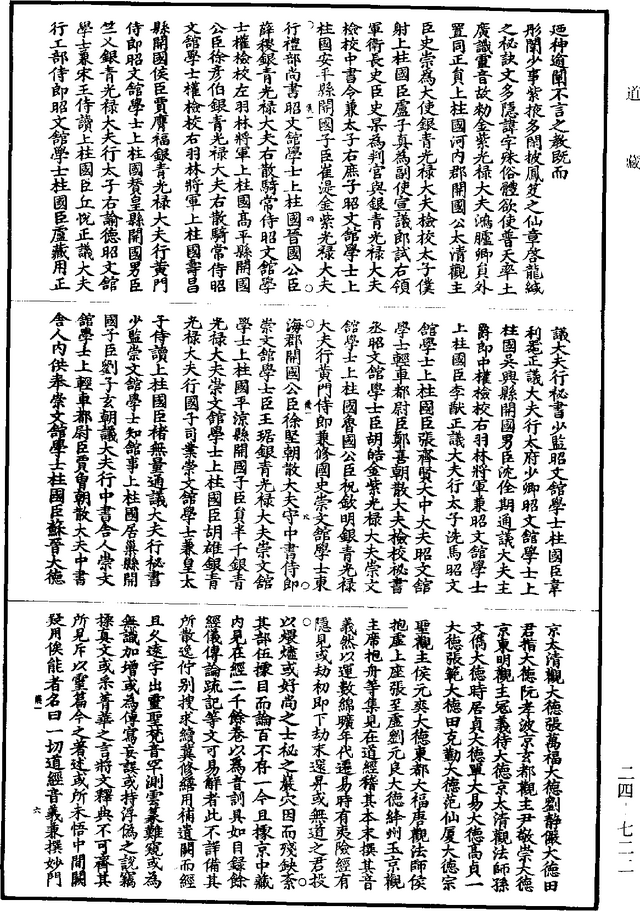 道藏
二四·七二一
迺种道闡不言之教既而
彤闈少事紫掖多閑披鳳笈之仙章啓龍緘
之秘訣文多隱諱字殊俗體欲使普天率土
廣識靈音故勑金紫光禄大夫鴻臚卿員外
置同正員上柱國河内郡開國公太清觀主
臣史崇爲大使銀青光禄大夫檢校太子僕
射上柱國臣盧子真爲副使宣議郎試右領
軍衛長史臣史杲爲判官與銀青光禄大夫
檢校中書令兼太子右庶子昭文館學士上
柱國安平縣開國子臣崔湜金紫光禄大夫
行禮部尚書昭文館學士上柱國晉國公臣
薛稷銀青光禄大夫右散騎常侍昭文館學
士權檢校左羽林將軍上柱國高平縣開國
公臣徐彦伯銀青光禄大夫右散騎常侍昭
文館學士權檢校右羽林將軍上柱國壽昌
縣開國侯臣賈膺福銀青光禄大夫行黄門
侍郎昭文館學士上柱國賛皇縣開國男臣
竺乂銀青光禄大夫行太子右諭德昭文館
學士兼宋王侍讀上柱國臣丘悦正議大夫
行工部侍郎昭文館學士柱國臣盧藏用正
議大夫行秘書少監昭文館學士柱國臣韋
利器正議大夫行太府少卿昭文館學士上
柱國吴興縣開國男臣沈佺期通議大夫主
爵郎中權檢校右羽林將軍兼昭文館學士
上柱國臣李猷正議大夫行太子洗馬昭文
館學士上柱國臣張齊賢大中大夫昭文館
學士輕車都尉臣鄭喜朝散大夫檢校秘書
丞昭文館學士臣胡皓金紫光禄大夫崇文
館學士上柱國魯國公臣祝欽明銀青光禄
大夫行黄門侍郎兼修國史崇文館學士東
海郡開國公臣徐堅朝散大夫守中書侍郎
崇文館學士臣王琚銀青光禄大夫崇文館
學士上柱國平凉縣開國子臣員半千銀青
光禄大夫崇文館學士上柱國臣胡雄銀青
光禄大夫行國子司業崇文館學士兼皇太
子侍讀上柱國臣褚無量通議大夫行秘書
少監崇文館學士知館事上柱國居巢縣開
國子臣劉子玄朝議大夫行中書舍人崇文
館學士上輕車都尉臣賈曾朝散大夫中書
舍人内供奉崇文館學士柱國臣蘇晉大德
京太清觀大德張萬福大德劉静儼大德田
君楷大德阮孝波京玄都觀主尹敬崇大德
京東明觀主寇義待大德京太清觀法師孫
文儁大德時居貞大德單大易大德高貞一
大德張範大德田克勤大德范仙厦大德宗
聖觀主侯元爽大德東都大福唐觀法師侯
抱虚上座張至虚劉元良大德絳州玉京觀
主席抱舟等集見在道經稽其本末撰其音
義然以運數綿曠年代遷易時有夷險經有
隱見或劫初即下劫末還昇或無道之君投
以煨燼或好尚之士秘之巖穴因而殘缺紊
其部伍據目而論百不存一今且據京中藏
内見在經二千餘卷以爲音訓具如目録餘
經儀傳論疏記等文可易解者此不詳備其
所散逸佇别搜求續冀修繕用補遺闕而經
且久遠字出靈聖梵音罕測雲篆難窺或爲
無識加增或爲傳寫妄誤或持浮僞之説竊
揉真文或采菁華之言將文釋典不可齊其
所見斥以靈篇今之著述或所未悟中間闕
疑用俟能者名曰一切道經音義兼撰妙門